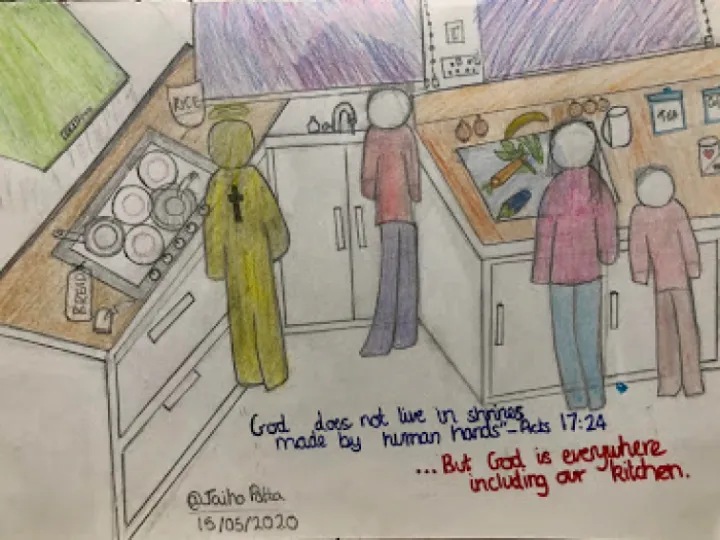 RICE
TEA
BREAD
"God does not live in shrines
made by human hands" - Acts 17:24
...But God is everywhere
including our kitchen.
15/05/2020